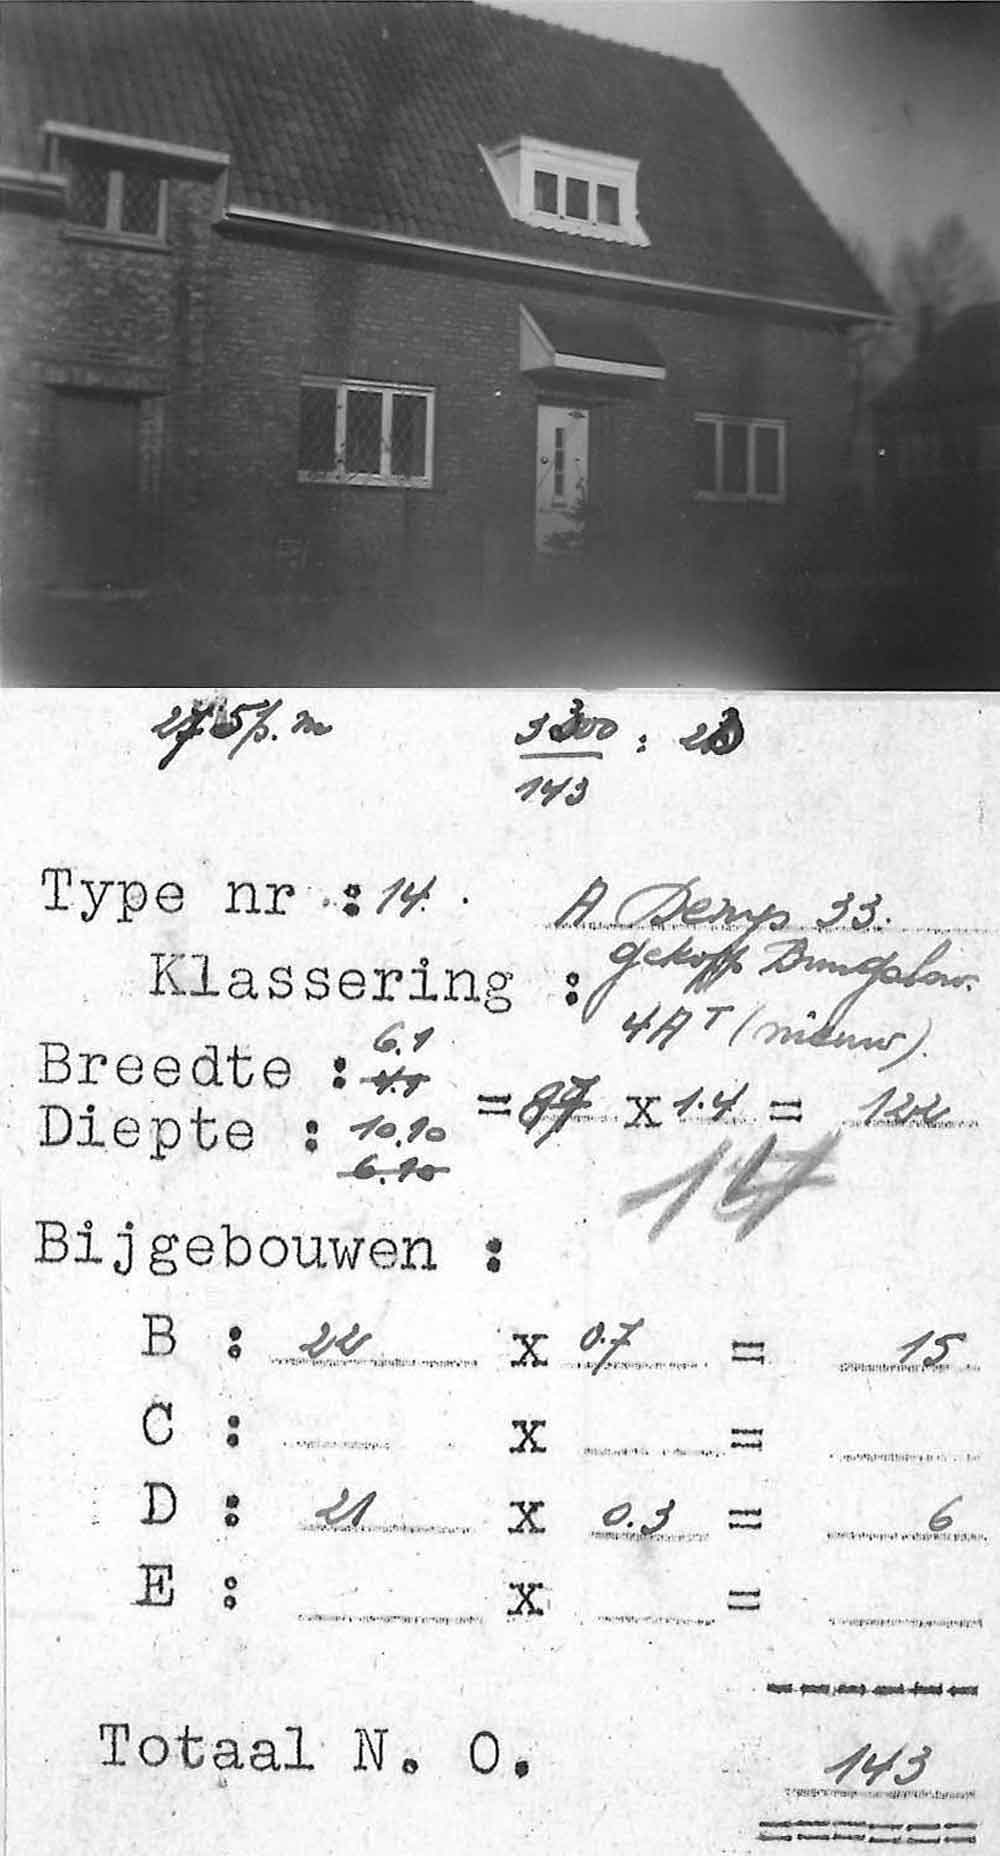 275 p.m 3300 : 23
143
Type nr : 14. A 33.
Klassering : gekopp Bungalow.
4A T (nieuw).
6.1
Breedte : 4.1
= 87 x 1.4 = 122
Diepte : 10.10
6.10
Bijgebouwen :
B : 22 x 0.7 = 15
C : x =
D : 21 x 0.3 = 6
E : x =
Totaal N. O. 143